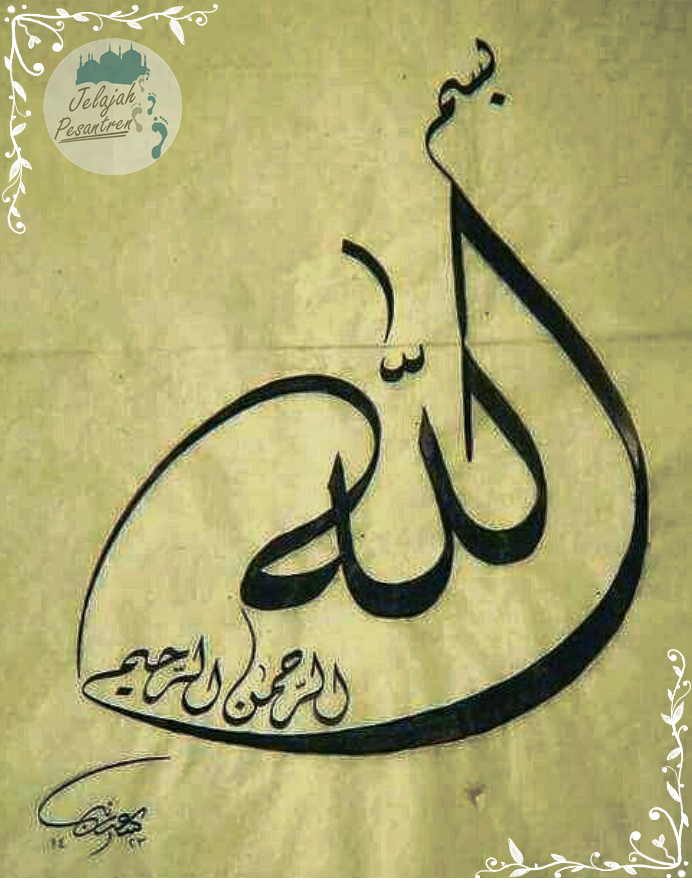 Jelajah
Pesantren
بسم
اللّٰه
الرَّحمن الرَّحيم